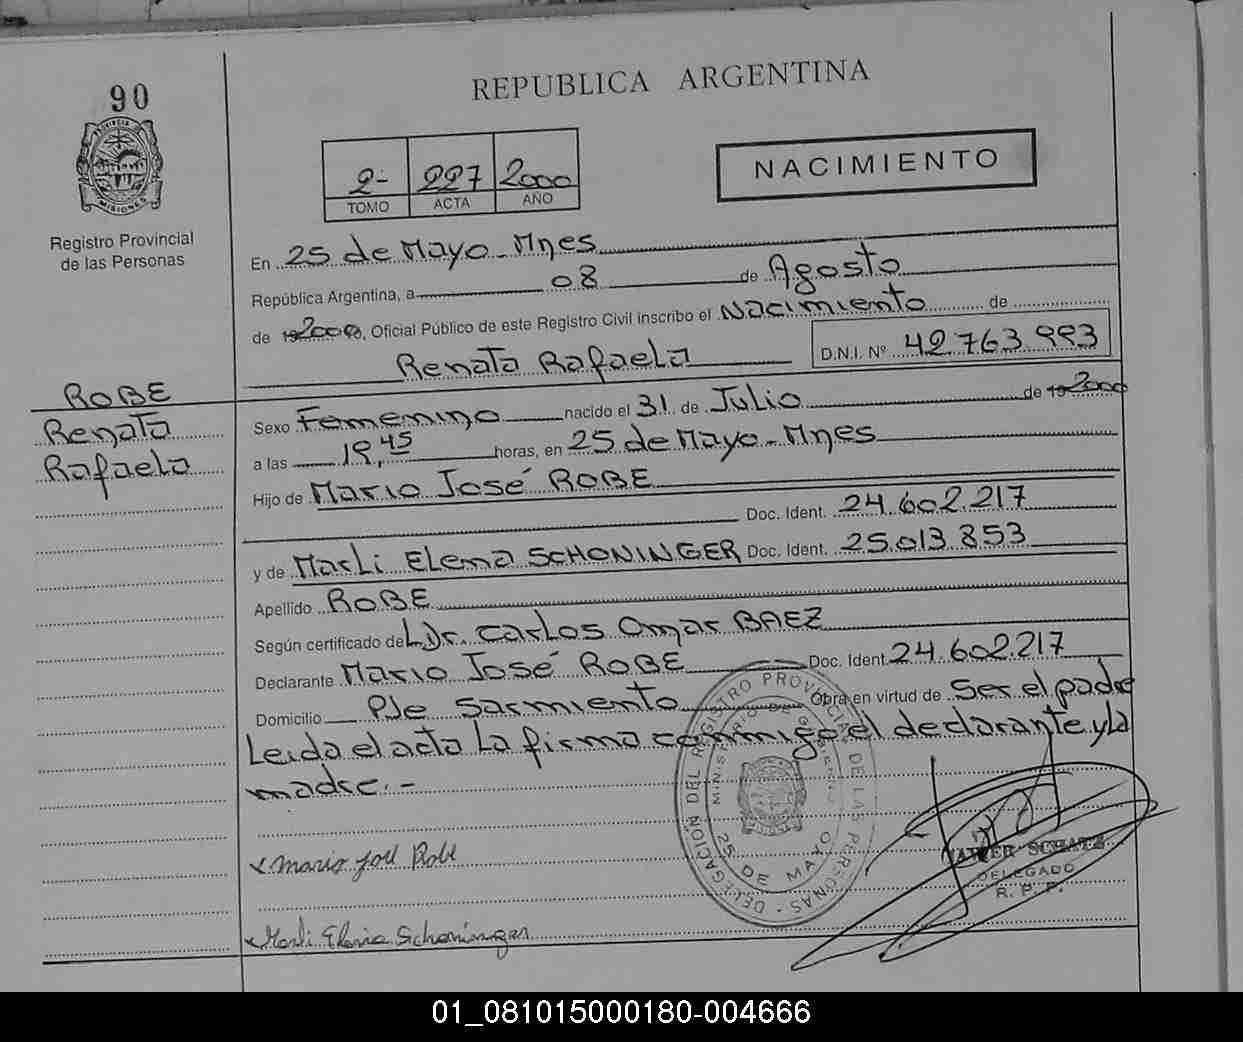 90
PROVINCIA
MISIONES
Registro Provincial
de las Personas
REPUBLICA ARGENTINA
2- 227 2000
TOMO ACTA AÑO
NACIMIENTO
En 25 de Mayo - Mnes
República Argentina, a 08 de Agosto
de 2000, Oficial Público de este Registro Civil inscribo el Nacimiento de
Renata Rafaela D.N.I. Nº 42.763.993
ROBE
Renata
Rafaela
Sexo Femenino nacido el 31 de Julio de 19 2000
a las 19,45 horas, en 25 de Mayo - Mnes
Hijo de Mario José ROBE
Doc. Ident. 24.602.217
y de Marli Elena SCHONINGER Doc. Ident. 25.013.853
Apellido ROBE
Según certificado de L Dr. Carlos Omar BAEZ
Declarante Mario José ROBE Doc. Ident. 24.602.217
Domicilio Pje Sarmiento Obra en virtud de Ser el padre
Leida el acta la firma conmigo el declarante y la
madre.-
x Mario José Robe
x Marli Elena Schoninger
DELEGACION DEL REGISTRO PROVINCIAL DE LAS PERSONAS
MINISTERIO DE GOBIERNO
25 DE MAYO
DELEGADO
R. P. P.
01_081015000180-004666